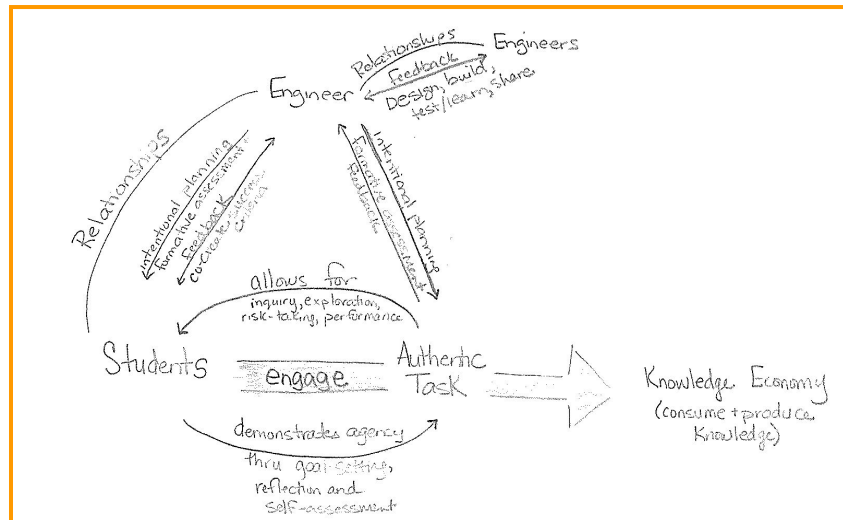 Relationships
Engineers
Feedback
Design, build,
test/learn, share
Engineer
Relationships
intentional planning
formative assessment+
feedback
co-create success
criteria
Intentional planning
formative assessment+
feedback
allows for
inquiry, exploration,
risk-taking, performance
Students
engage
Authentic
Task
Knowledge Economy
(consume + produce
Knowledge)
demonstrates agency
thru goal-setting,
reflection and
self-assessment